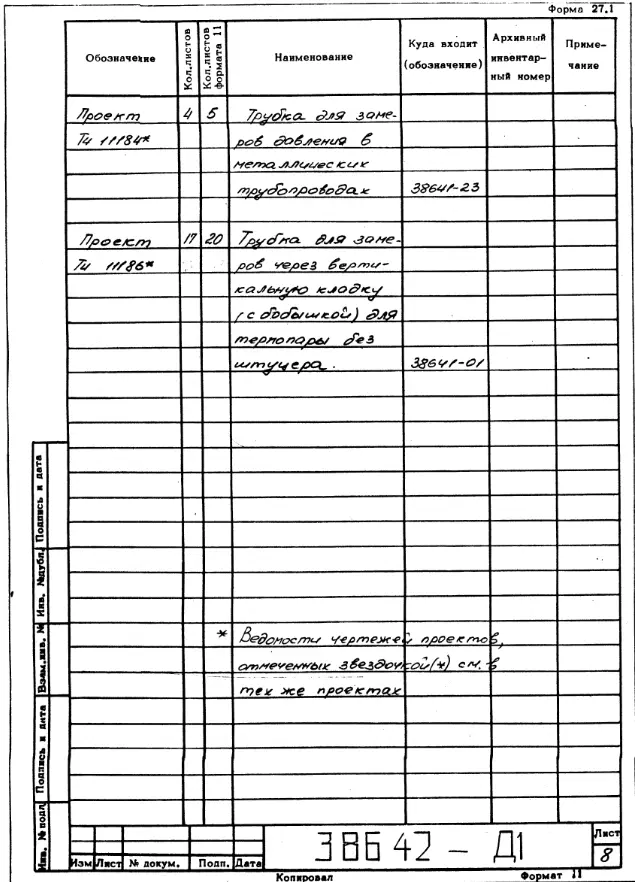 Форма 27.1
Обозначение
Кол.листов
Кол.листов формата 11
Наименование
Куда входит (обозначение)
Архивный инвентар-ный номер
Приме-чание
Проект 4 5 Трубка для заме-
Т4 11184* ров давления в
металлических
трубопроводах 38641-23
Проект 17 20 Трубка для заме-
Т4 11186* ров через верти-
кальную кладку
(с бобышкой) для
термопары без
штуцера. 38641-01
* Ведомости чертежей проектов,
отмеченных звездочкой(*) см. в
тех же проектах
Подпись и дата
Инв. №дубл.
Взам.инв. №
Подпись и дата
Инв. №подл
Изм Лист № докум. Подп. Дата
38642-Д1
Лист
8
Копировал Формат 11